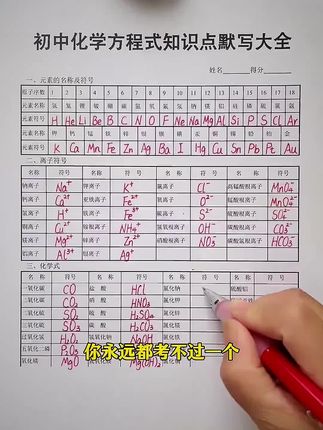 初中化学方程式知识点默写大全
姓名 得分
一、元素的名称及符号
原子序数 1 2 3 4 5 6 7 8 9 10 11 12 13 14 15 16 17 18
元素名称 氢 氦 锂 铍 硼 碳 氮 氧 氟 氖 钠 镁 铝 硅 磷 硫 氯 氩
元素符号 H He Li Be B C N O F Ne Na Mg Al Si P S Cl Ar
元素符号 K Ca Mn Fe Zn Ag Ba I Hg Cu Sn Pt Pb Au
二、离子符号
名称 符号 名称 符号 名称 符号 名称 符号
钠离子 Na⁺ 钾离子 K⁺ 氯离子 Cl⁻ 高锰酸根离子 MnO₄⁻
钙离子 Ca²⁺ 亚铁离子 Fe²⁺ 氧离子 O²⁻ 锰酸根离子 MnO₄²⁻
氢离子 H⁺ 铁离子 Fe³⁺ 硫离子 S²⁻ 硫酸根离子 SO₄²⁻
铜离子 Cu²⁺ 铵根离子 NH₄⁺ 氢氧根离子 OH⁻ 碳酸根离子 CO₃²⁻
镁离子 Mg²⁺ 锌离子 Zn²⁺ 硝酸根离子 NO₃⁻ 碳酸氢根离子 HCO₃⁻
铝离子 Al³⁺ 银离子 Ag⁺
三、化学式
名称 符号 名称 符号 名称 符号 名称
一氧化碳 CO 盐酸 HCl 氯化钠 硫酸铝
二氧化碳 CO₂ 硝酸 HNO₃ 氯化钾
二氧化硫 SO₂ 硫酸 H₂SO₄ 氯化
三氧化硫 SO₃ 碳酸 H₂CO₃ 氯化
过氧化氢 H₂O₂ NaOH
五氧化二磷 P₂O₅
氧化镁 MgO Mg(OH)₂
你永远都考不过一个